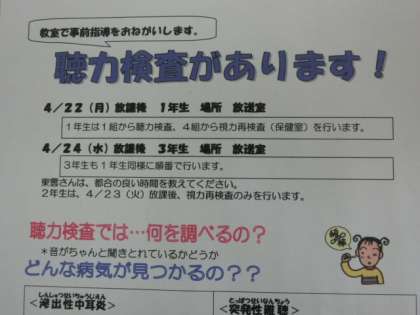 教室で事前指導をおねがいします。
聴力検査があります！
4／22（月）放課後　1年生　場所　放送室
1年生は1組から聴力検査、4組から視力再検査（保健室）を行います。
4／24（水）放課後　3年生　場所　放送室
3年生も1年生同様に順番で行います。
東雲さんは、都合の良い時間を教えてください。
2年生は、4／23（火）放課後、視力再検査のみを行います。
聴力検査では…何を調べるの？
＊音がちゃんと聞きとれているかどうか
どんな病気が見つかるの？？
しんしゅつせいちゅうじえん
＜滲出性中耳炎＞
とっぱつせいなんちょう
＜突発性難聴＞